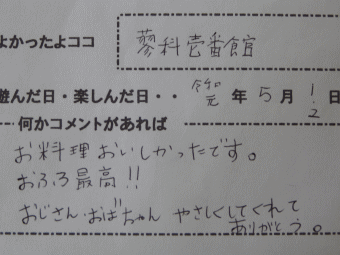 よかったよココ 蓼科壱番館
遊んだ日・楽しんだ日・・ 令和元年5月1.2日
何かコメントがあれば
お料理おいしかったです。
おふろ最高!!
おじさん・おばちゃん やさしくしてくれて
ありがとう。